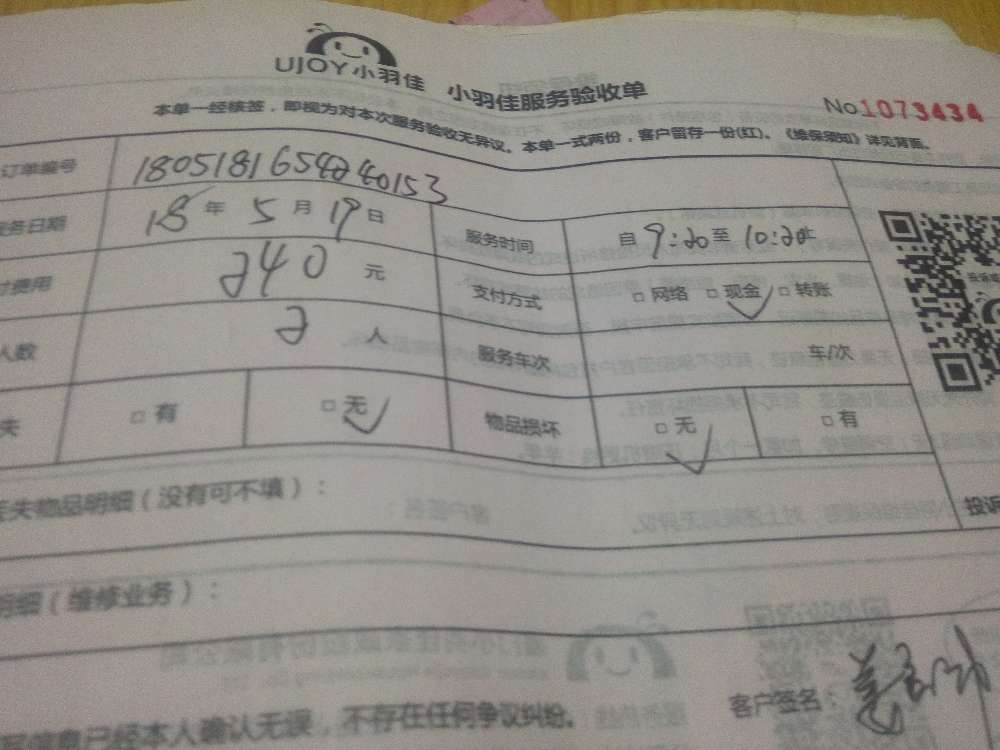 UJOY小羽佳 小羽佳服务验收单
No 1073434
本单一经核签，即视为对本次服务验收无异议。本单一式两份，客户留存一份(红)。《维保须知》详见背面。
订单编号 180518165424015​3
务日期 18年5月19日 服务时间 自9:20至10:20止
费用 240元 支付方式 □网络 □现金✓ □转账
人数 2人 服务车次 车/次
失 □有 □无✓ 物品损坏 □无✓ □有
失物品明细（没有可不填）： 投诉
明细（维修业务）：
客户签名：
信息已经本人确认无误，不存在任何争议纠纷。